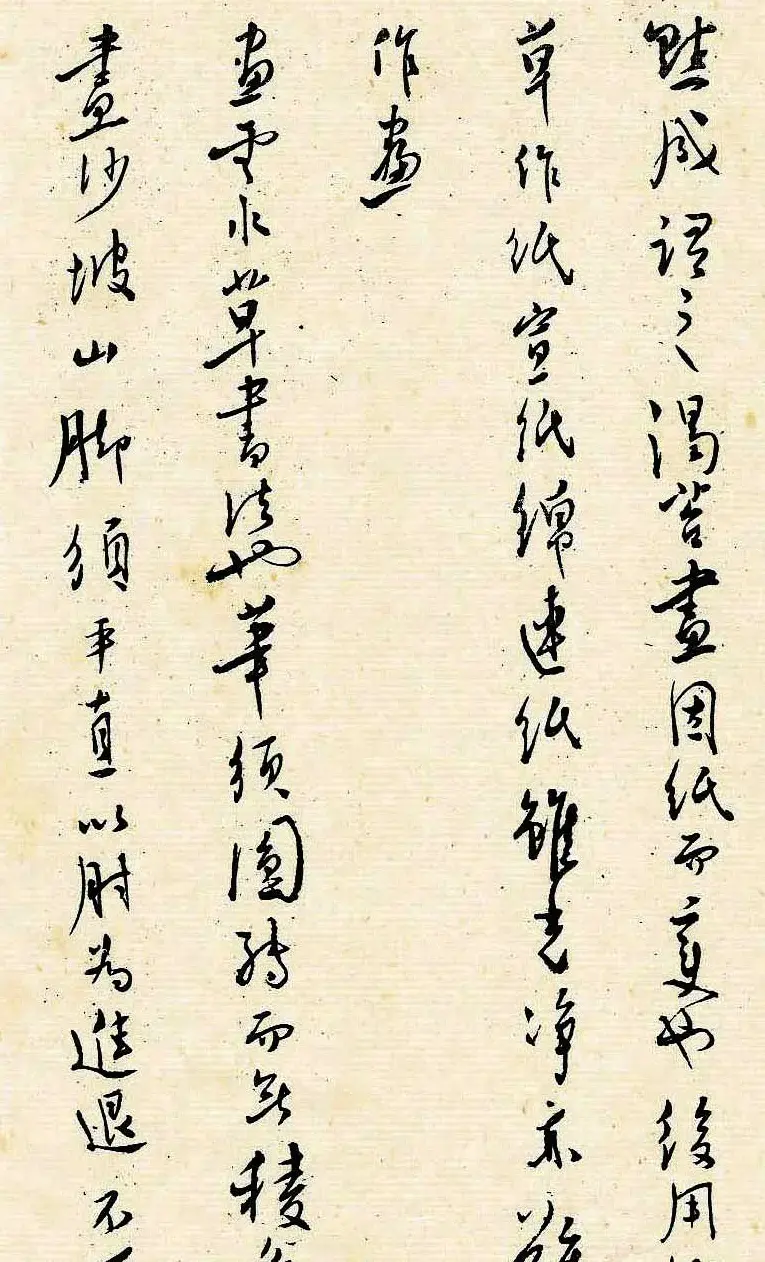 點成謂之渴苔畫因紙而變也後用
草作紙宣紙綿連紙雖光净亦難
作畫
畫雲水草書法也筆須圓轉而無稜
畫沙坡山脚須平直以肘為進退不